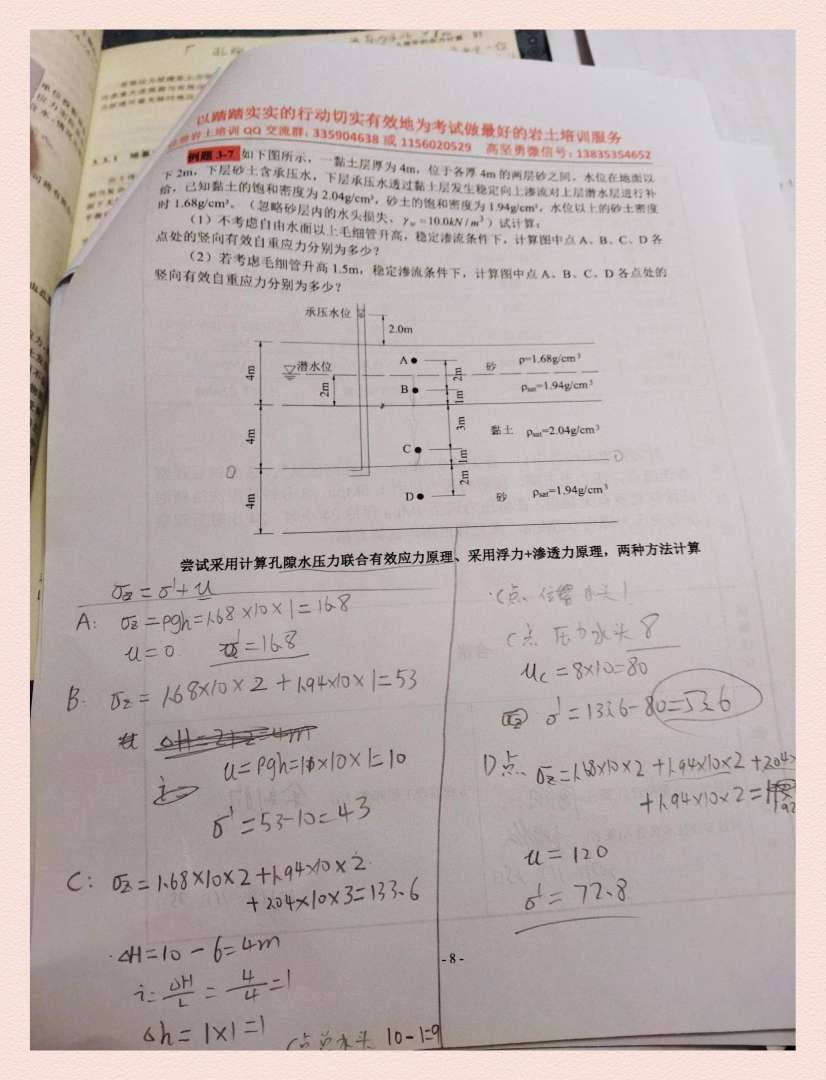 以踏踏实实的行动切实有效地为考试做最好的岩土培训服务
岩土培训 QQ 交流群：335904638 或 1156020529 高坚勇微信号：13835354652
例题 3-7 如下图所示，一黏土层厚为 4m，位于各厚 4m 的两层砂之间，水位在地面以
下 2m，下层砂土含承压水，下层承压水透过黏土层发生稳定向上渗流对上层潜水层进行补
给，已知黏土的饱和密度为 2.04g/cm³，砂土的饱和密度为 1.94g/cm³，水位以上的砂土密度
时 1.68g/cm³。（忽略砂层内的水头损失、γw=10.0kN/m³）试计算：
（1）不考虑自由水面以上毛细管升高，稳定渗流条件下，计算图中点 A、B、C、D 各
点处的竖向有效自重应力分别为多少？
（2）若考虑毛细管升高 1.5m，稳定渗流条件下，计算图中点 A、B、C、D 各点处的
竖向有效自重应力分别为多少？
承压水位
2.0m
4m
潜水位
2m
A
B
2m
1m
砂
ρ=1.68g/cm³
ρsat=1.94g/cm³
4m
3m
黏土 ρsat=2.04g/cm³
C
1m
0
0
4m
D
2m
砂 ρsat=1.94g/cm³
尝试采用计算孔隙水压力联合有效应力原理、采用浮力+渗透力原理，两种方法计算
σz=σ'+u
A: σz=ρgh=1.68×10×1=16.8
u=0. σ'=16.8
B: σz=1.68×10×2+1.94×10×1=53
ΔH=2+2=4m
u=ρgh=1×10×1=10
i
σ'=53-10=43
C: σz=1.68×10×2+1.94×10×2
+2.04×10×3=133.6
ΔH=10-6=4m
i=ΔH/L=4/4=1
Δh=1×1=1
C点总水头 10-1=9
C点 位置水头1
C点 压力水头 8
uC=8×10=80
σ'=133.6-80=53.6
D点. σz=1.68×10×2+1.94×10×2+2.04×
+1.94×10×2=
u=120
σ'=72.8
-8-